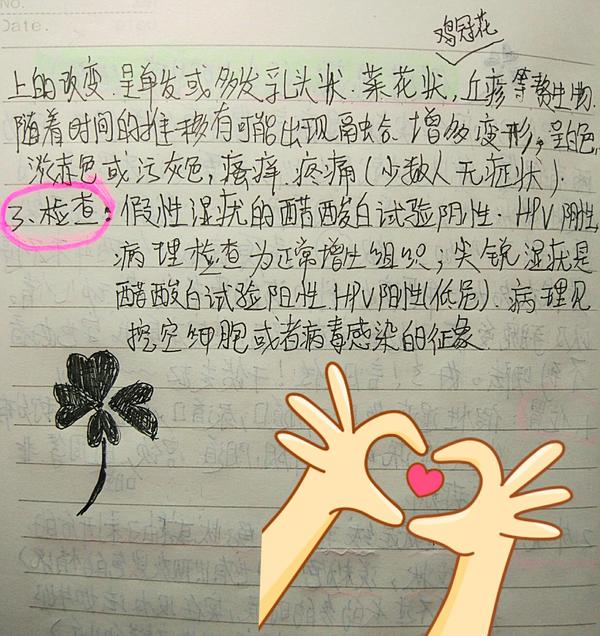 No.
Date.
鸡冠花
上的改变.呈单发或多发乳头状.菜花状,丘疹等赘生物.
随着时间的推移有可能出现融合.增多变形。呈白色,
淡赤色或污灰色,瘙痒.疼痛(少数人无症状).
3、检查:假性湿疣的醋酸白试验阴性.HPV阴性,
病理检查为正常增生组织;尖锐湿疣是
醋酸白试验阳性.HPV阳性(低危).病理见
挖空细胞或者病毒感染的征象